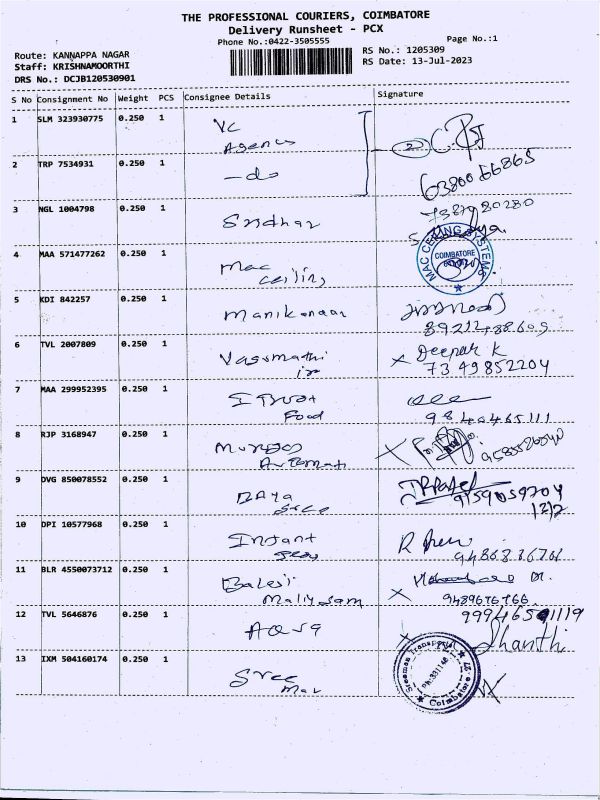 THE PROFESSIONAL COURIERS, COIMBATORE
Delivery Runsheet - PCX
Phone No.:0422-3505555 Page No.:1
Route: KANNAPPA NAGAR RS No.: 1205309
Staff: KRISHNAMOORTHI RS Date: 13-Jul-2023
DRS No.: DCJB120530901
S No Consignment No Weight PCS Consignee Details Signature
1 SLM 323930775 0.250 1 VC
Agencs
2
2 TRP 7534931 0.250 1 -do
6380066865
3 NGL 1004798 0.250 1 Sridhar
4 MAA 571477262 0.250 1 Mac
ceiling
MAC CEILING SYSTEMS
COIMBATORE
5 KDI 842257 0.250 1 Manikandan
6 TVL 2007809 0.250 1 Vassmathi x Deepak K
7349852204
7 MAA 299952395 0.250 1 ITrust
Food
9840465111
8 RJP 3168947 0.250 1
9 DVG 850078552 0.250 1 DAya
9159059704
10 DPI 10577968 0.250 1 Instant R
11 BLR 4550073712 0.250 1 Balaji
x 9489676766
12 TVL 5646876 0.250 1 Aqua
Shanthi
13 IXM 504160174 0.250 1 Sree
Sreeman Transports
Coimbatore